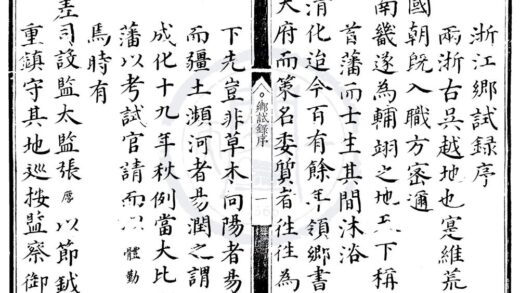 浙江鄉試錄序
兩浙古吳越地也寔維荒
國朝既入職方密邇
南畿遂為輔翊之地天下稱
首藩而士生其間沐浴
清化迨今百有餘年領鄉書
天府而策名委質者往往為
鄉試錄序
一
下先豈非草木向陽者昜
而疆土瀕河者昜潤之謂
成化十九年秋例當大比
藩以考試官請而以體勤
馬時有
差司設監太監張慶以節鉞
重鎮守其地巡按監察御